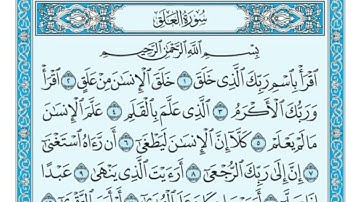 سُورَةُ العَلَقِ
بِسْمِ اللَّهِ الرَّحْمَٰنِ الرَّحِيمِ
ٱقۡرَأۡ بِٱسۡمِ رَبِّكَ ٱلَّذِي خَلَقَ ١ خَلَقَ ٱلۡإِنسَٰنَ مِنۡ عَلَقٍ ٢ ٱقۡرَأۡ
وَرَبُّكَ ٱلۡأَكۡرَمُ ٣ ٱلَّذِي عَلَّمَ بِٱلۡقَلَمِ ٤ عَلَّمَ ٱلۡإِنسَٰنَ
مَا لَمۡ يَعۡلَمۡ ٥ كَلَّآ إِنَّ ٱلۡإِنسَٰنَ لَيَطۡغَىٰٓ ٦ أَن رَّءَاهُ ٱسۡتَغۡنَىٰٓ
٧ إِنَّ إِلَىٰ رَبِّكَ ٱلرُّجۡعَىٰٓ ٨ أَرَءَيۡتَ ٱلَّذِي يَنۡهَىٰ ٩ عَبۡدًا